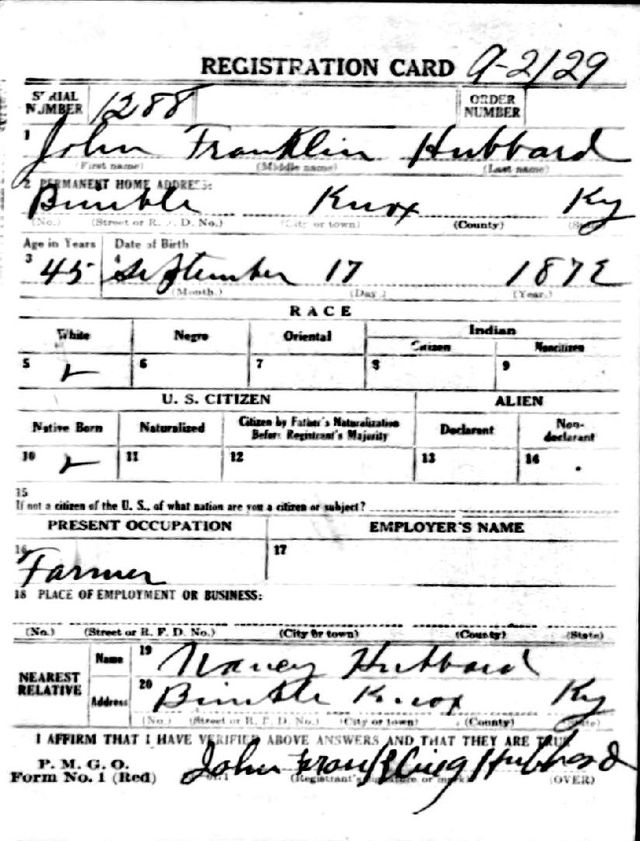 REGISTRATION CARD 9-2/29
SERIAL NUMBER 1288 ORDER NUMBER
1 John Franklin Hubbard
(First name) (Middle name) (Last name)
2 PERMANENT HOME ADDRESS:
Bimble Knox Ky
(No.) (Street or R. F. D. No.) (City or town) (County) (State)
Age in Years Date of Birth
3 45 4 September 17 1872
(Month.) (Day.) (Year.)
RACE
White Negro Oriental Indian
Citizen Noncitizen
5 6 7 8 9
U. S. CITIZEN ALIEN
Native Born Naturalized Citizen by Father's Naturalization Before Registrant's Majority Declarant Non-declarant
10 11 12 13 14
15
If not a citizen of the U. S., of what nation are you a citizen or subject?
PRESENT OCCUPATION EMPLOYER'S NAME
16 Farmer 17
18 PLACE OF EMPLOYMENT OR BUSINESS:
(No.) (Street or R. F. D. No.) (City or town) (County) (State)
NEAREST RELATIVE Name 19 Nancy Hubbard
Address 20 Bimble Knox Ky
(No.) (Street or R. F. D. No.) (City or town) (County) (State)
I AFFIRM THAT I HAVE VERIFIED ABOVE ANSWERS AND THAT THEY ARE TRUE
P. M. G. O.
Form No. 1 (Red) John Hubbard
(Registrant's signature or mark) (OVER)